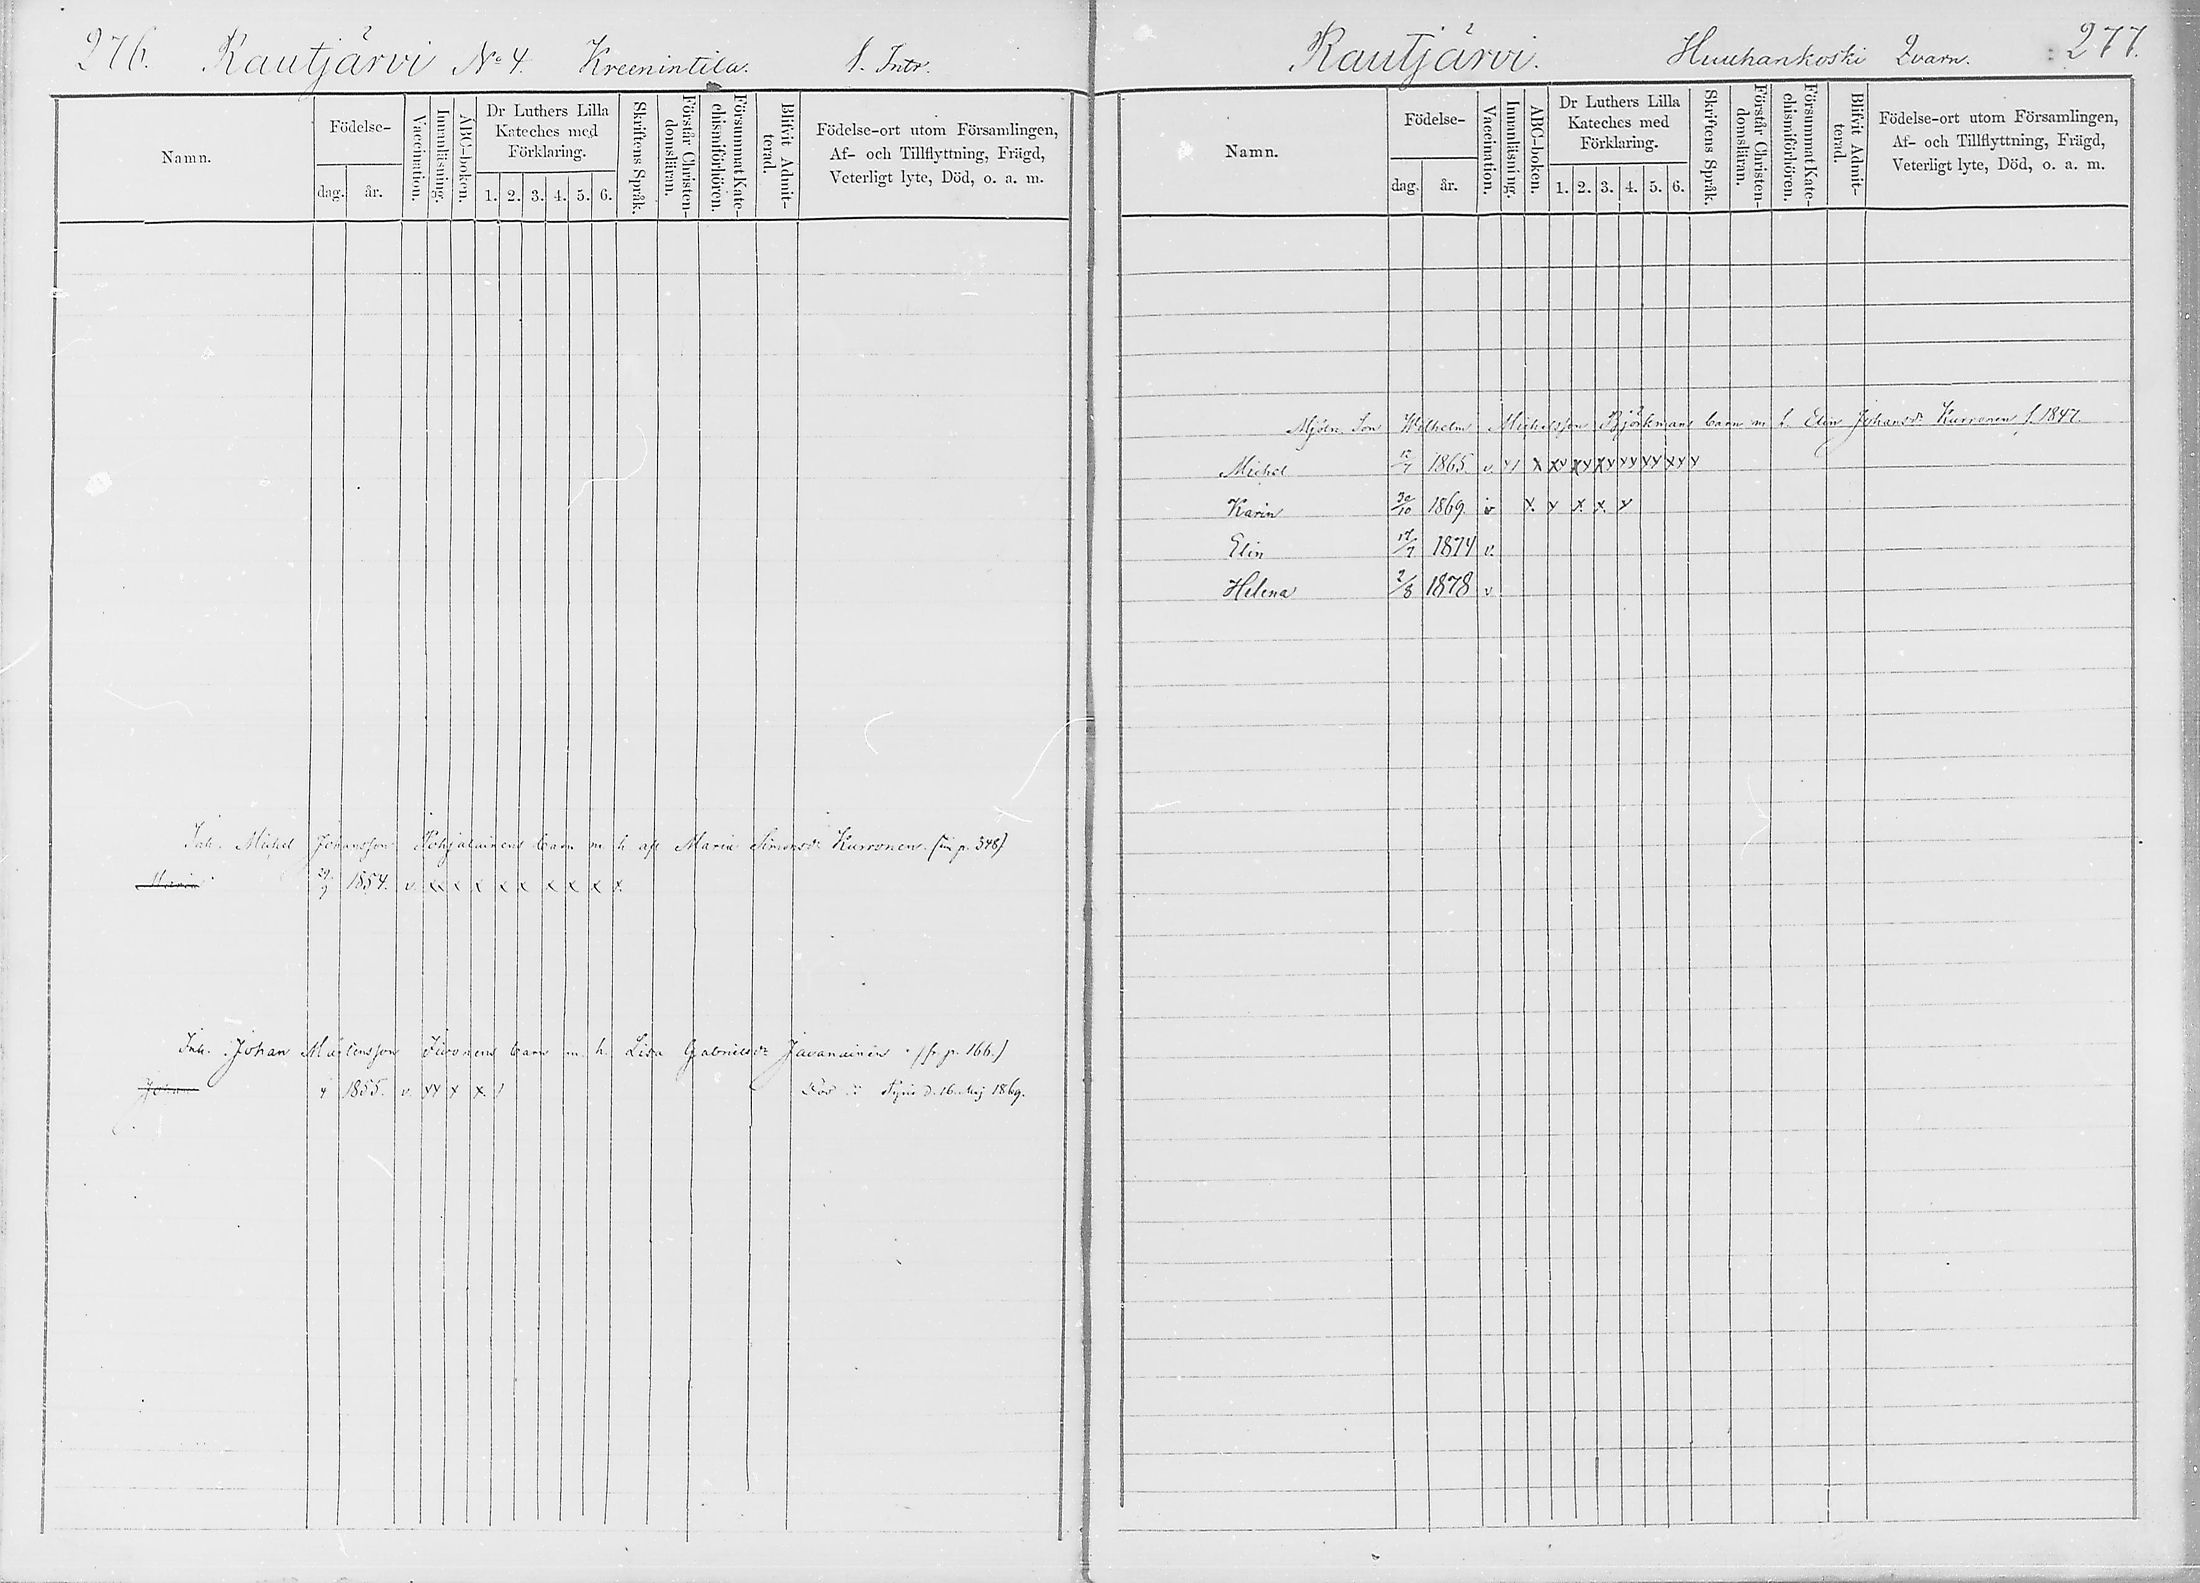 276. Rautjärvi No 4. Kreenintila. 1. Intr.
Namn.
Födelse-
dag.
år.
Vaccination.
Innanläsning.
ABC-boken.
Dr Luthers Lilla
Kateches med
Förklaring.
1. 2. 3. 4. 5. 6.
Skriftens Språk.
Förstår Christen-
domsläran.
Försummat Kate-
chismiförhören.
Blifvit Admit-
terad.
Födelse-ort utom Församlingen,
Af- och Tillflyttning, Frägd,
Veterligt lyte, Död, o. a. m.
Inh. Michel Johansson Pohjalainens barn m h afl Maria Simonsdr Kurronen (sin p. 348)
Maria 29/9 1854. v. xx x x x x x x x x
Inh. Johan Mårtensson barn m. h. Lisa Gabrielsdr Javanainen (fr. p. 166.)
Johan 4 1855. v. xx x x 1 Död d. 16. Maj 1869.
Rautjärvi. Huuhankoski Qvarn. 277.
Namn.
Födelse-
dag.
år.
Vaccination.
Innanläsning.
ABC-boken.
Dr Luthers Lilla
Kateches med
Förklaring.
1. 2. 3. 4. 5. 6.
Skriftens Språk.
Förstår Christen-
domsläran.
Försummat Kate-
chismiförhören.
Blifvit Admit-
terad.
Födelse-ort utom Församlingen,
Af- och Tillflyttning, Frägd,
Veterligt lyte, Död, o. a. m.
Mjöln. Son Wilhelm Michelsson Björkmans barn m h. Elin Johansdr Kurronen f. 1847.
Michel 12/7 1865. v. x1 x xv xy xy yy xy xy y
Karin 30/10 1869. v x. y x. x. y
Elin 17/7 1874 v.
Helena 2/8 1878 v